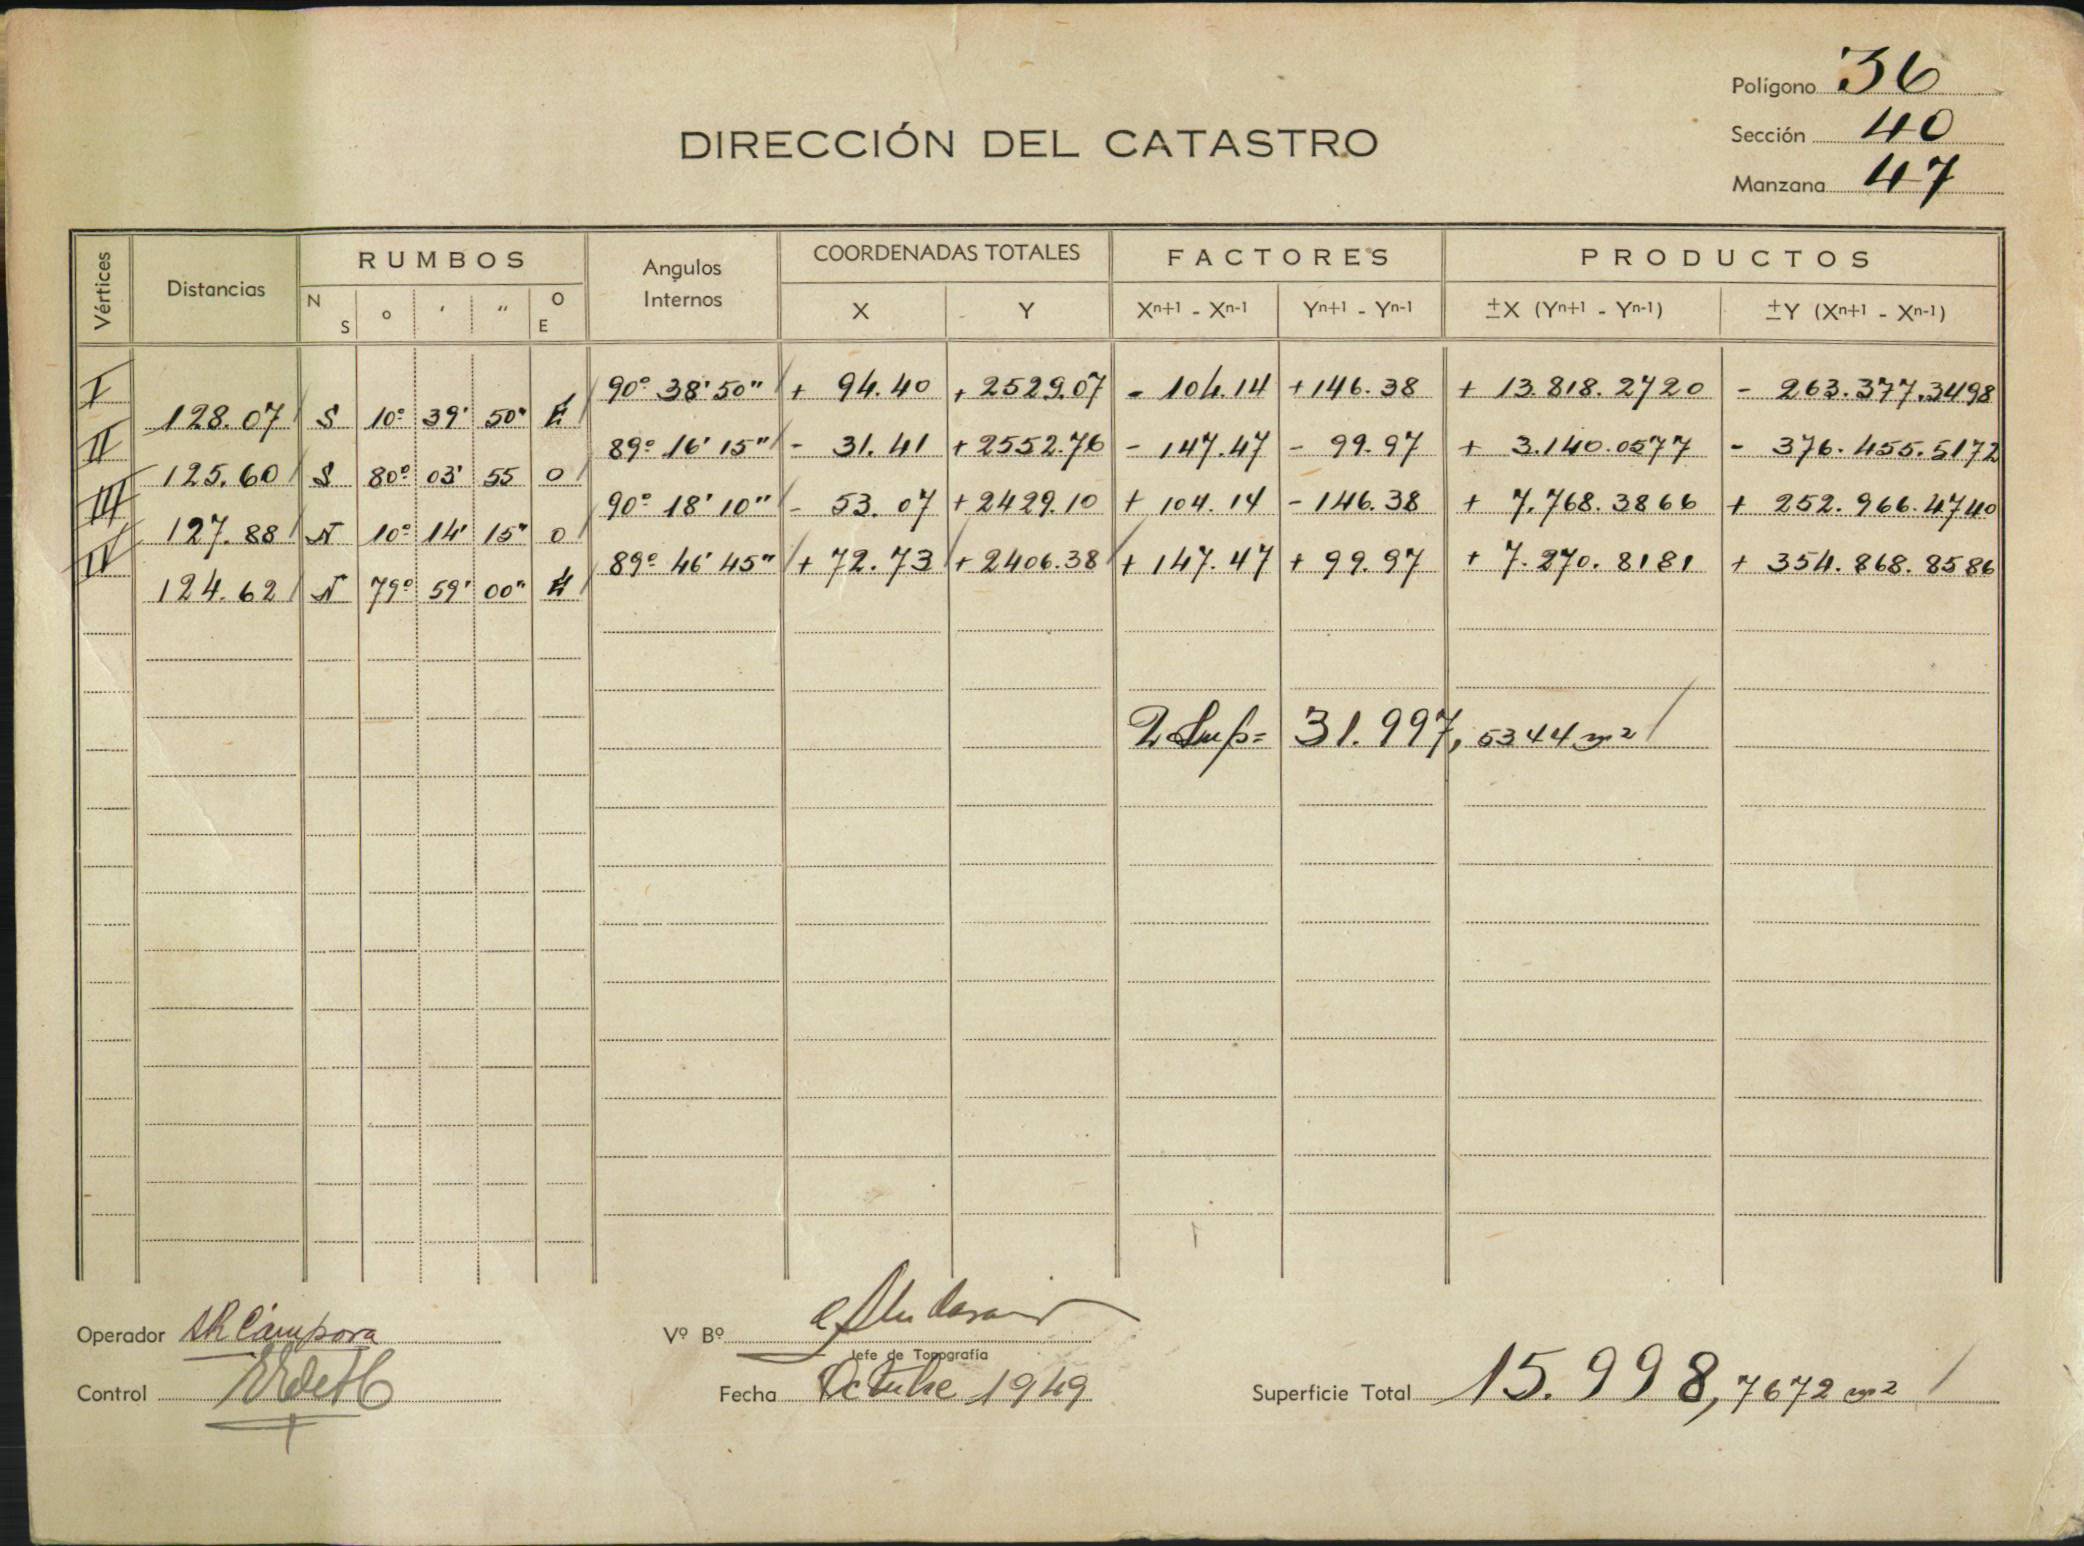 Polígono 36
DIRECCIÓN DEL CATASTRO
Sección 40
Manzana 47
Vértices Distancias RUMBOS Angulos Internos COORDENADAS TOTALES FACTORES PRODUCTOS
N S o ' " O E X Y Xn+1 - Xn-1 Yn+1 - Yn-1 ±X (Yn+1 - Yn-1) ±Y (Xn+1 - Xn-1)
I 90º 38' 50" + 94.40 + 2529.07 - 104.14 + 146.38 + 13.818.2720 - 263.377.3498
128.07 S 10º 39' 50" E
II 89º 16' 15" - 31.41 + 2552.76 - 147.47 - 99.97 + 3.140.0577 - 376.455.5172
125.60 S 80º 03' 55 O
III 90º 18' 10" - 53.07 + 2429.10 + 104.14 - 146.38 + 7.768.3866 + 252.966.4740
127.88 N 10º 14' 15" O
IV 89º 46' 45" + 72.73 + 2406.38 + 147.47 + 99.97 + 7.270.8181 + 354.868.8586
124.62 N 79º 59' 00" E
2 Sup= 31.997,5344 m2
Operador AR Cámpora Vº Bº
Jefe de Topografía
Control Fecha Octubre 1949 Superficie Total 15.998,7672 m2